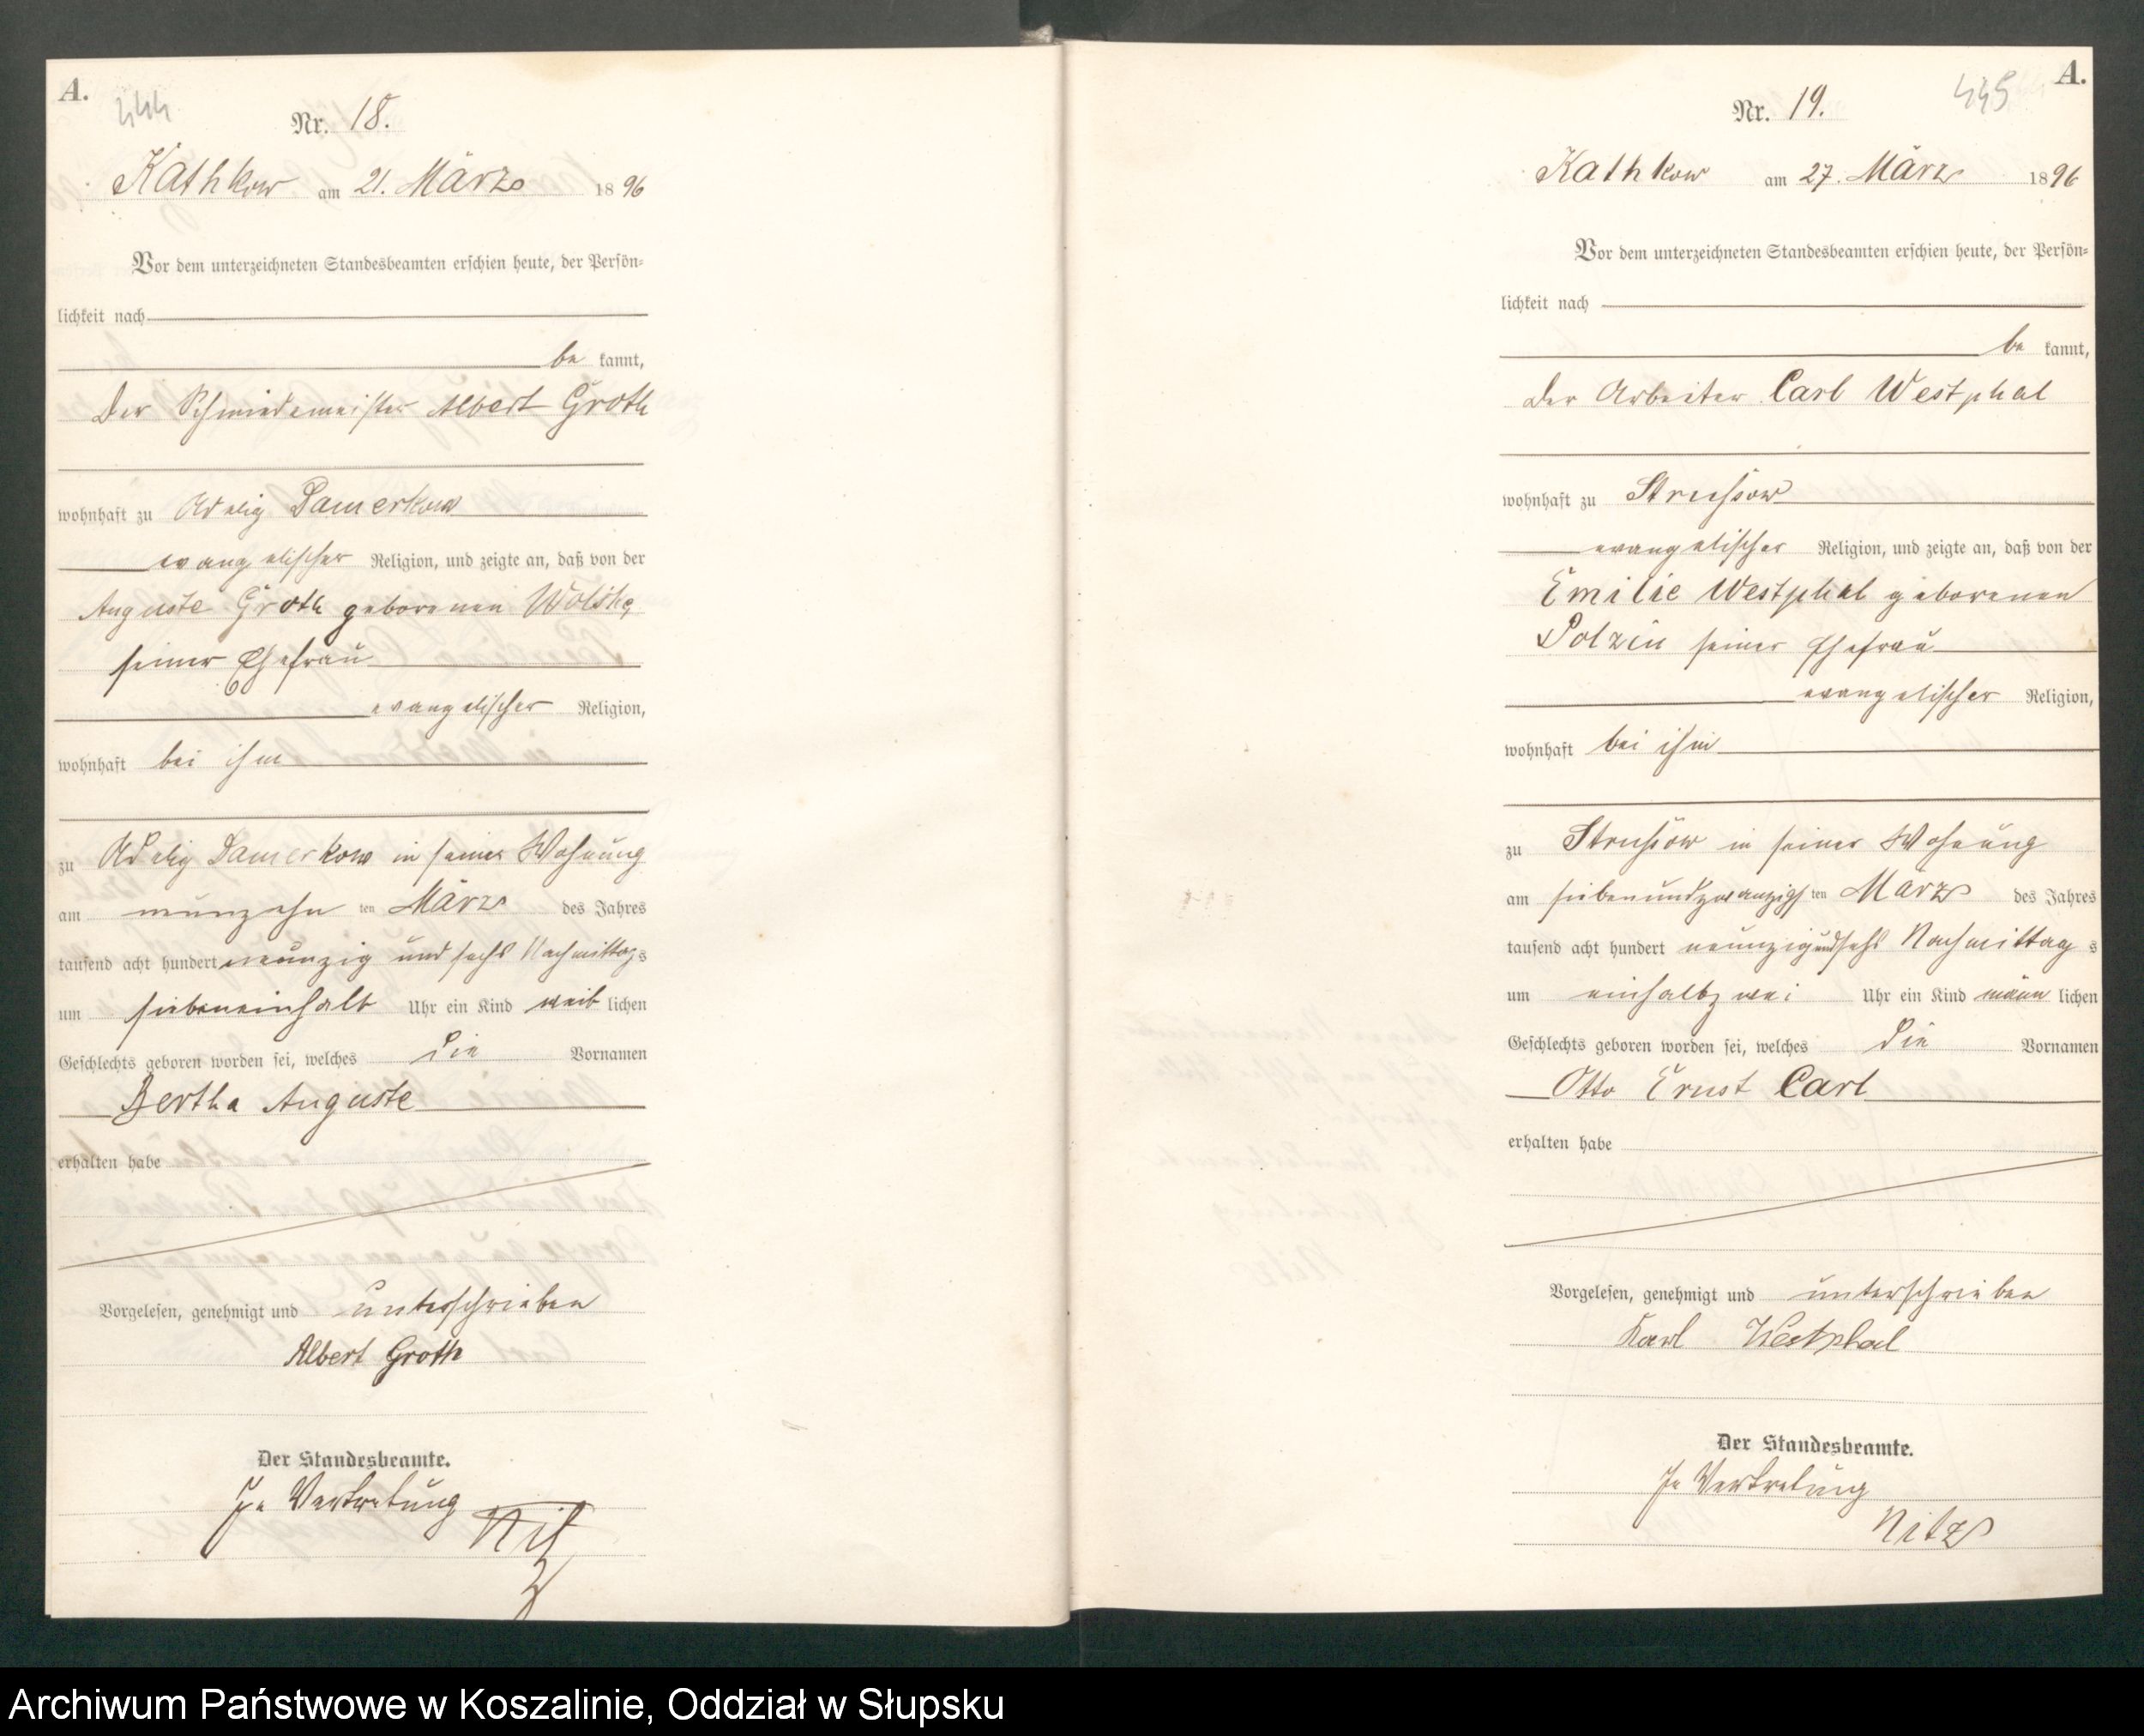 A.
444
Nr. 18.
Kathkow am 21. März 1896
Vor dem unterzeichneten Standesbeamten erschien heute, der Persön-
lichkeit nach
be kannt,
Der Schmiedemeister Albert Groth
wohnhaft zu Adelig Damerkow
evangelischer Religion, und zeigte an, daß von der
Auguste Groth geborenen Wolske,
seiner Ehefrau
evangelischer Religion,
wohnhaft bei ihm
zu Adelig Damerkow in seiner Wohnung
am neunzehn ten März des Jahres
tausend acht hundert neunzig und sechs Nachmittags
um siebeneinhalb Uhr ein Kind weib lichen
Geschlechts geboren worden sei, welches die Vornamen
Bertha Auguste
erhalten habe
Vorgelesen, genehmigt und unterschrieben
Albert Groth
Der Standesbeamte.
In Vertretung
Nitz
A.
445
Nr. 19.
Kathkow am 27. März 1896
Vor dem unterzeichneten Standesbeamten erschien heute, der Persön-
lichkeit nach
be kannt,
der Arbeiter Carl Westphal
wohnhaft zu Strussow
evangelischer Religion, und zeigte an, daß von der
Emilie Westphal geborenen
Polzin seiner Ehefrau
evangelischer Religion,
wohnhaft bei ihm
zu Strussow in seiner Wohnung
am siebenundzwanzigsten März des Jahres
tausend acht hundert neunzigundsechs Nachmittags
um einhalbzwei Uhr ein Kind männ lichen
Geschlechts geboren worden sei, welches die Vornamen
Otto Ernst Carl
erhalten habe
Vorgelesen, genehmigt und unterschrieben
Karl Westphal
Der Standesbeamte.
In Vertretung
Nitz
Archiwum Państwowe w Koszalinie, Oddział w Słupsku